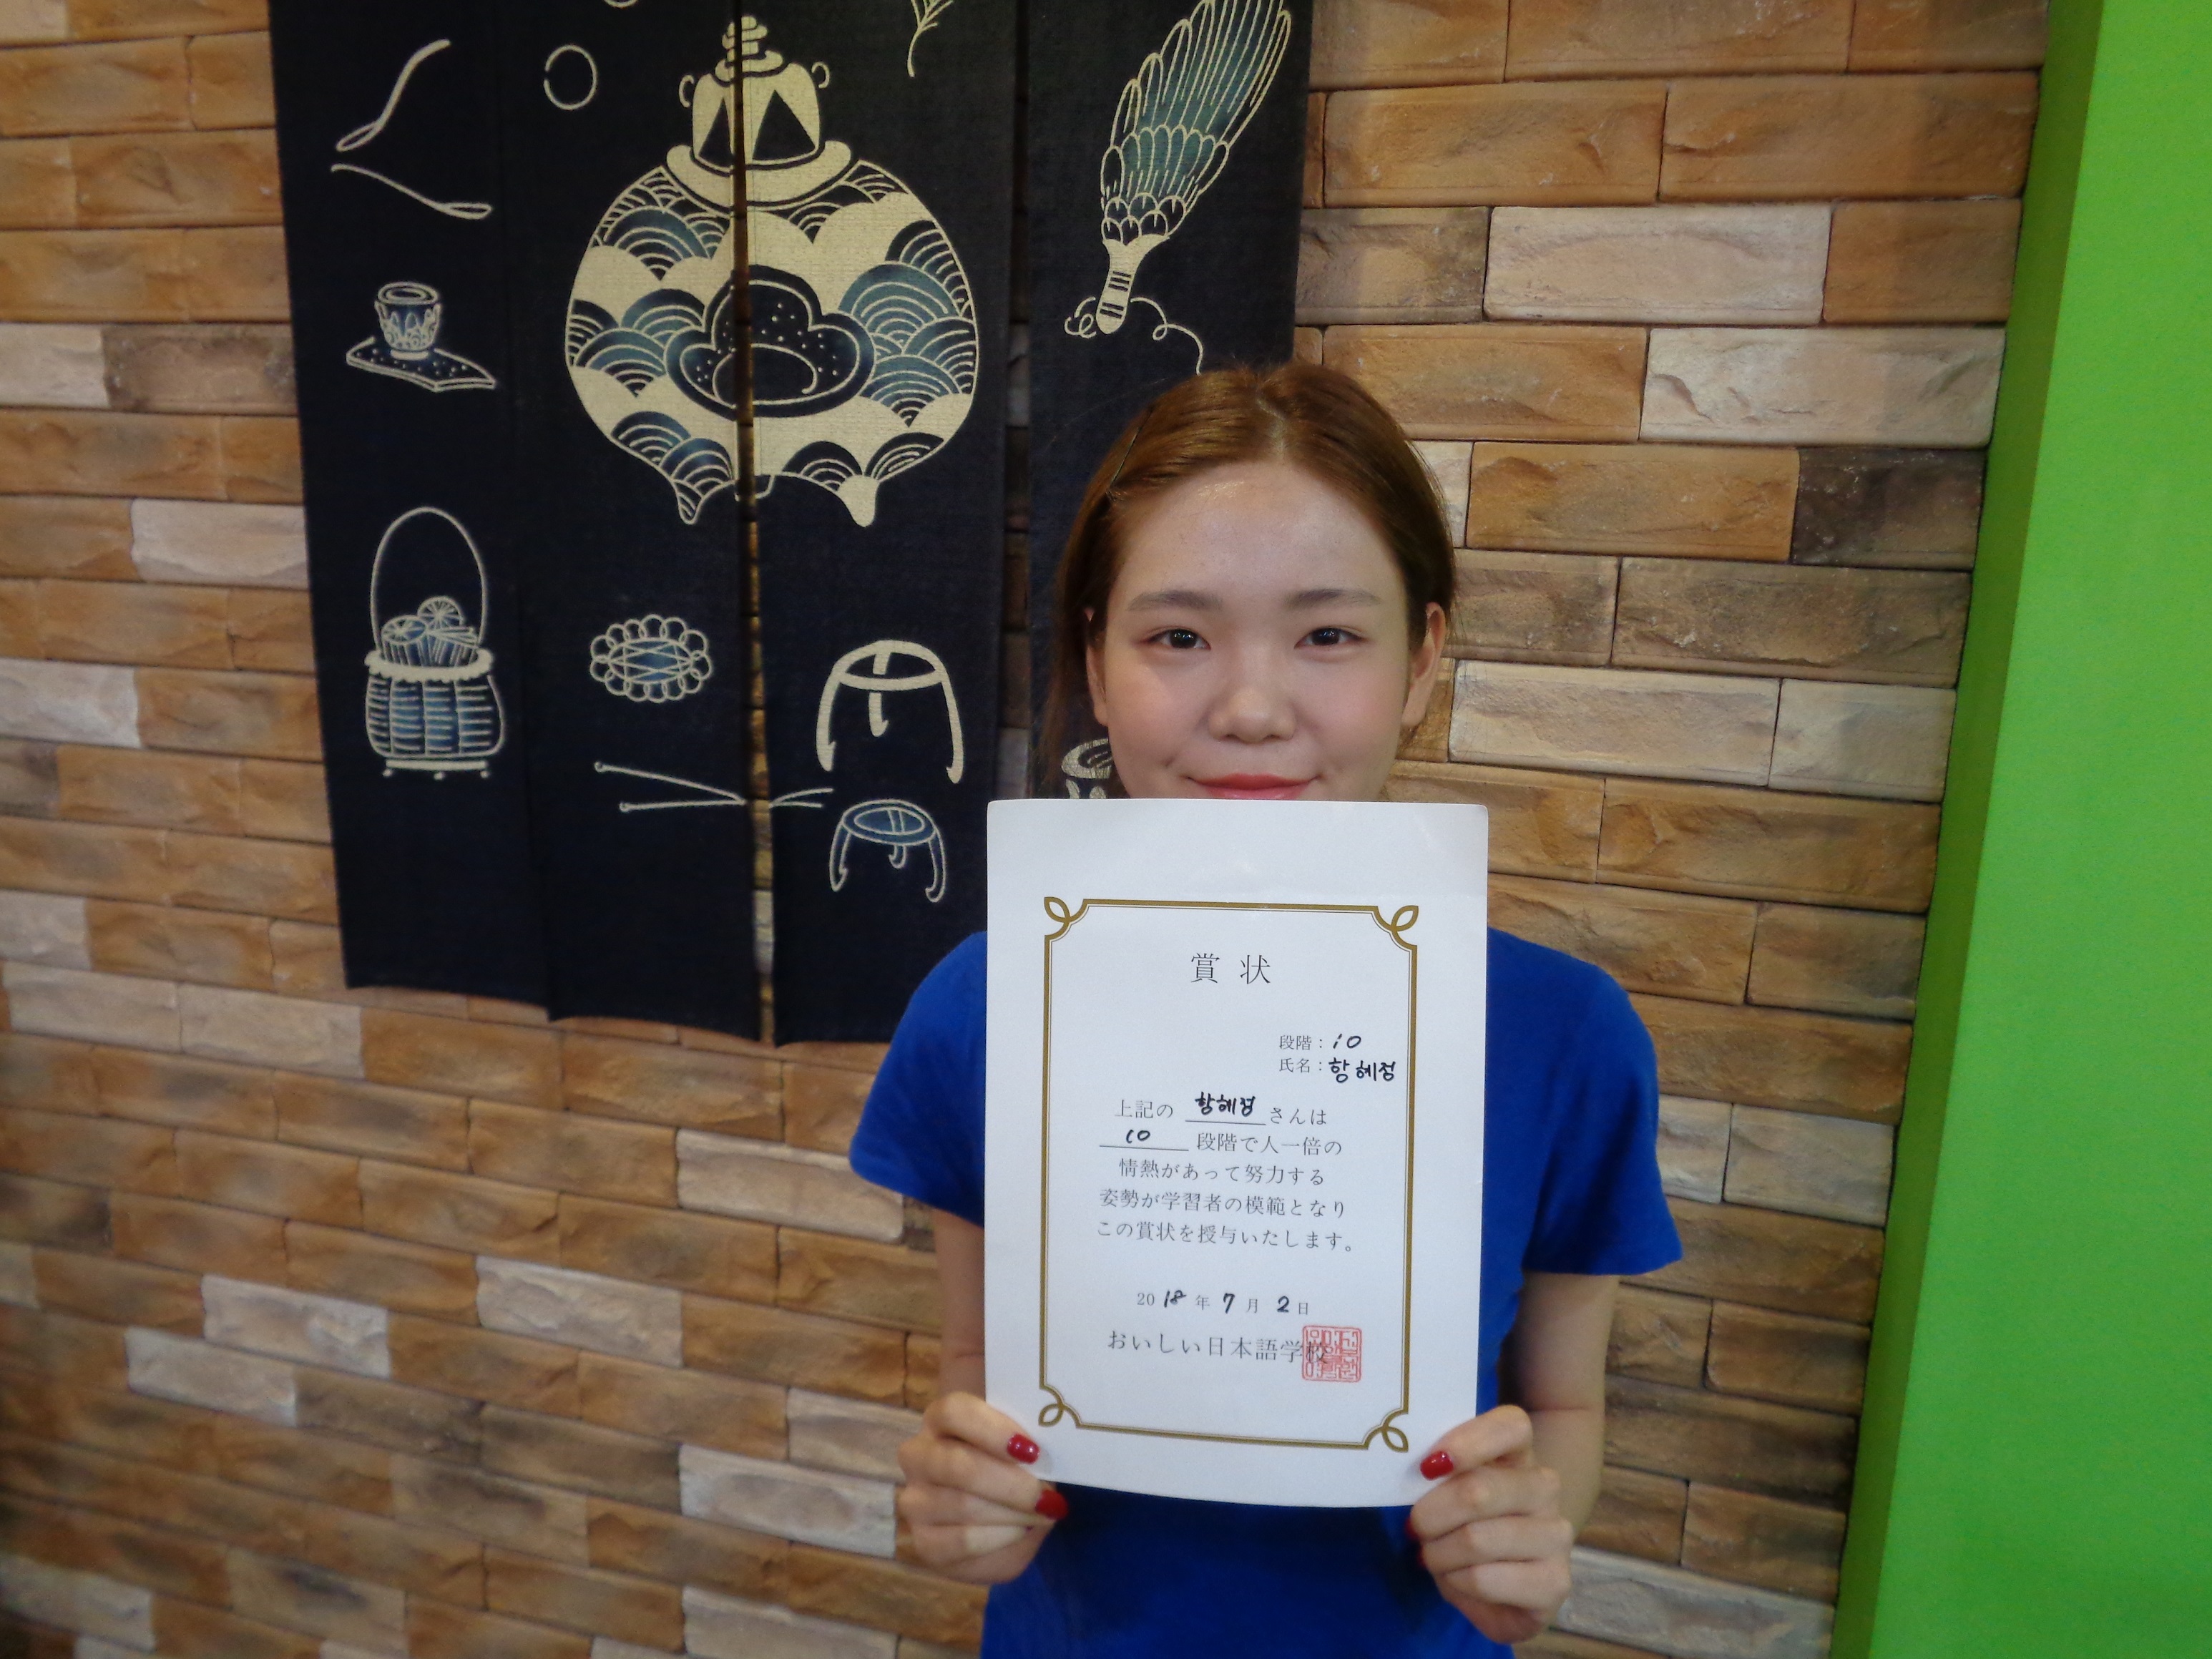 賞 状
段階：10
氏名：황혜정
上記の 황혜정 さんは
10 段階で人一倍の
情熱があって努力する
姿勢が学習者の模範となり
この賞状を授与いたします。
2018 年 7 月 2 日
おいしい日本語学校